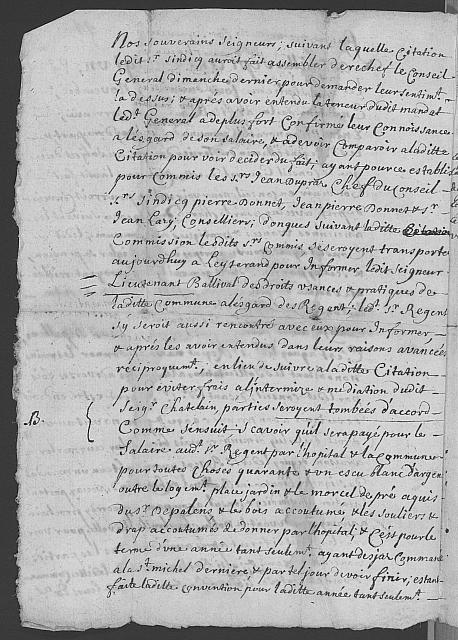 Nos souverains seigneurs; suivant laquelle Citation
ledit sr sindicq auroit fait assembler derechef le Conseil
General dimanche dernier pour demander leur sentimt
la dessus; & apres avoir entendu la teneur dudit mandat
ledt General a de plus fort Confirmé leur Connoissance
a lésgard de son salaire, & a devoir Comparoir a laditte
Citation pour voir decider du fait; ayant pource establi
pour Commis les srs Jean Duprax Chef du Conseil
srs sindicq pierre Donnet, Jean pierre Donnet & sr
Jean Lary, Conselliers; donques suivant laditte
Commission lesdits srs Commis se seroyent transporte
aujourdhuy a Leyterand pour Informer ledit seigneur
Lieutenant Ballival des droits usances & pratiques de
laditte Commune a lésgard des Regent; ledt sr Regent
sy seroit aussi rencontré avec eux pour Informer,
& après les avoir entendus dans leurs raisons avancées
reciproquemt; en lieu de suivre a laditte Citation
pour eviter frais a l'intermize & mediation dudit
B. seigr Chatelain, parties seroyent tombées d'accord
Comme sensuit sçavoir quil sera payé pour le
salaire audt sr Regent par l'hopital & la Commune
pour toutes Choses quarante & un escu blanc d'argent
outre le logemt place jardin & le morcel de pre aquis
du sr Depaléns & le bois accoutumé & les souliers &
drap accoutumés de donner par l'hopital, & c'est pour le
terme d'une année tant seulemt ayant desja Commancé
a la st michel derniere & par tel jour devoir finir, estant
faite laditte convention pour laditte année tant seulemt.